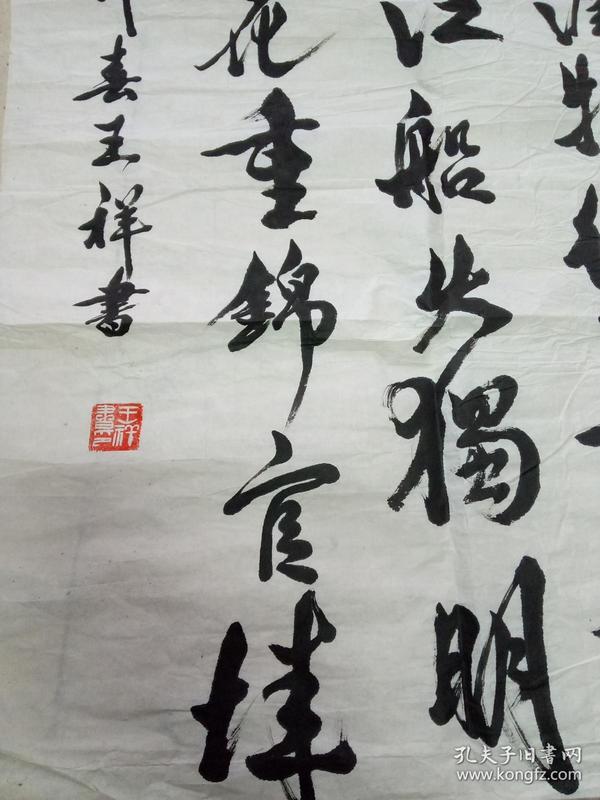 潤物
江船火獨明
花重錦官城
春王祥書
王祥書印
孔夫子旧書网
www.kongfz.com